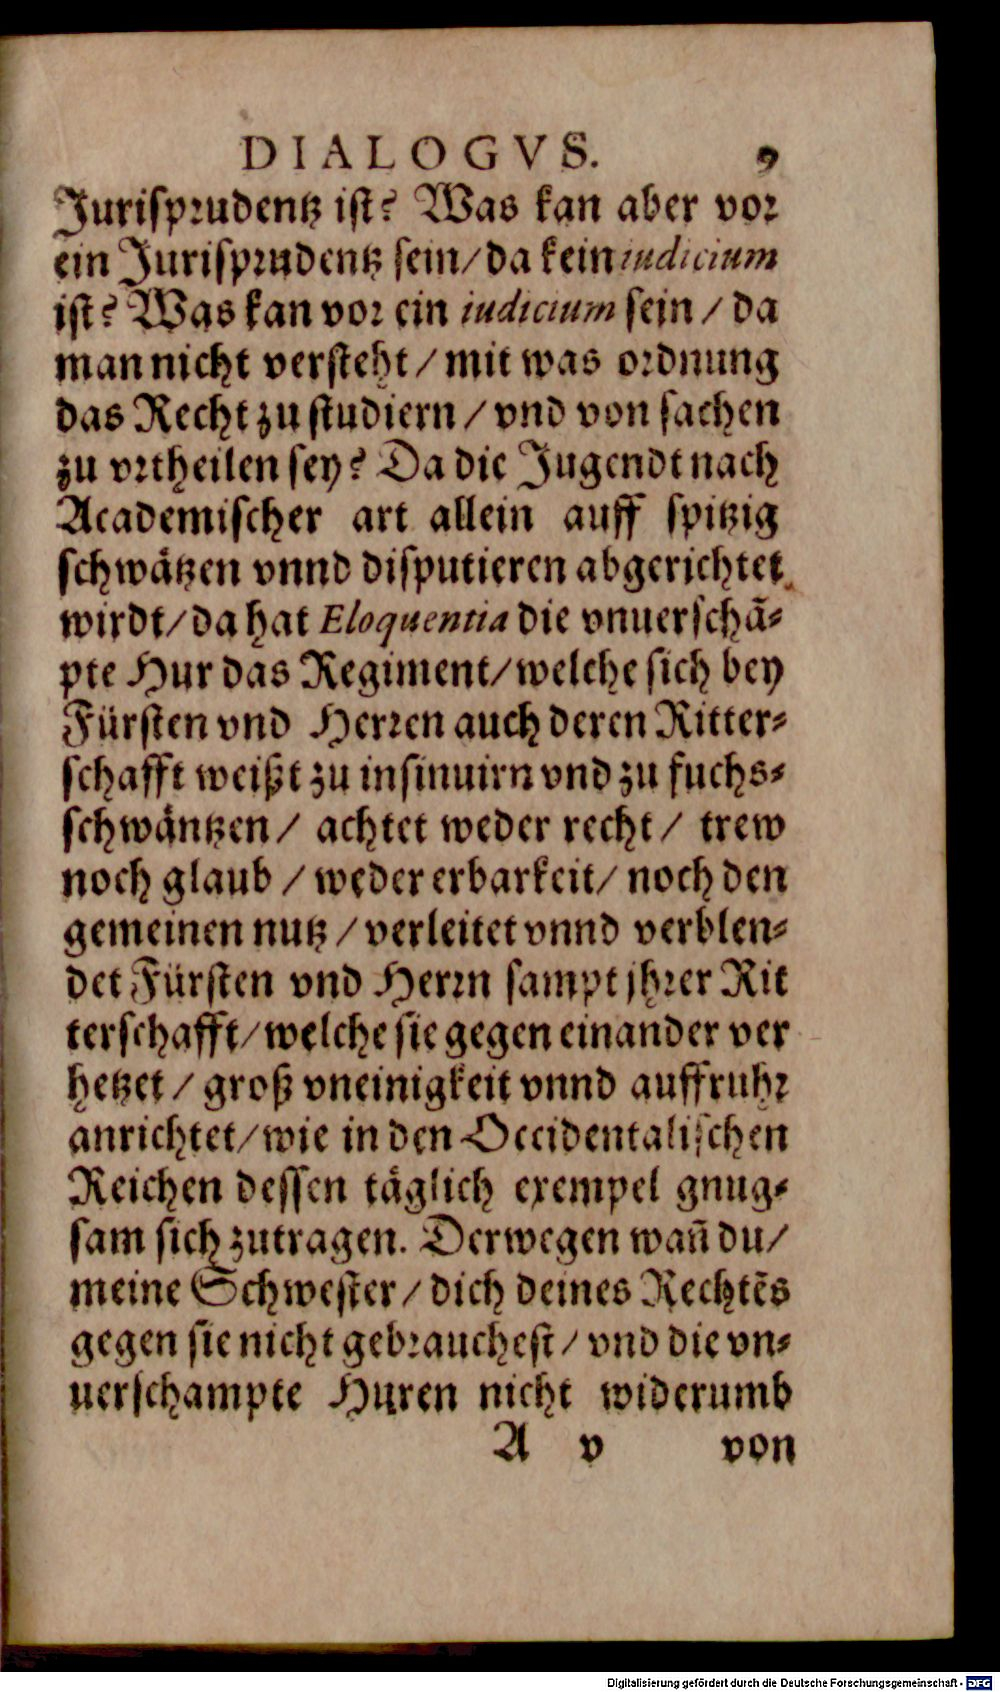 DIALOGVS. 9
Jurisprudentz ist? Was kan aber vor
ein Jurisprudentz sein/ da kein iudicium
ist? Was kan vor ein iudicium sein / da
man nicht versteht / mit was ordnung
das Recht zu studiern / vnd von sachen
zu vrtheilen sey? Da die Jugendt nach
Academischer art allein auff spitzig
schwätzen vnnd disputieren abgerichtet
wirdt/ da hat Eloquentia die vnuerschã-
pte Hur das Regiment/ welche sich bey
Fürsten vnd Herren auch deren Ritter-
schafft weißt zu insinuirn vnd zu fuchs-
schwäntzen / achtet weder recht / trew
noch glaub / weder erbarkeit/ noch den
gemeinen nutz / verleitet vnnd verblen-
det Fürsten vnd Herrn sampt jhrer Rit
terschafft/ welche sie gegen einander ver
hetzet / groß vneinigkeit vnnd auffruhr
anrichtet/ wie in den Occidentalischen
Reichen dessen täglich exempel gnug-
sam sich zutragen. Derwegen wañ du/
meine Schwester / dich deines Rechtẽs
gegen sie nicht gebrauchest / vnd die vn-
uerschampte Huren nicht widerumb
A v von
Digitalisierung gefördert durch die Deutsche Forschungsgemeinschaft - DFG